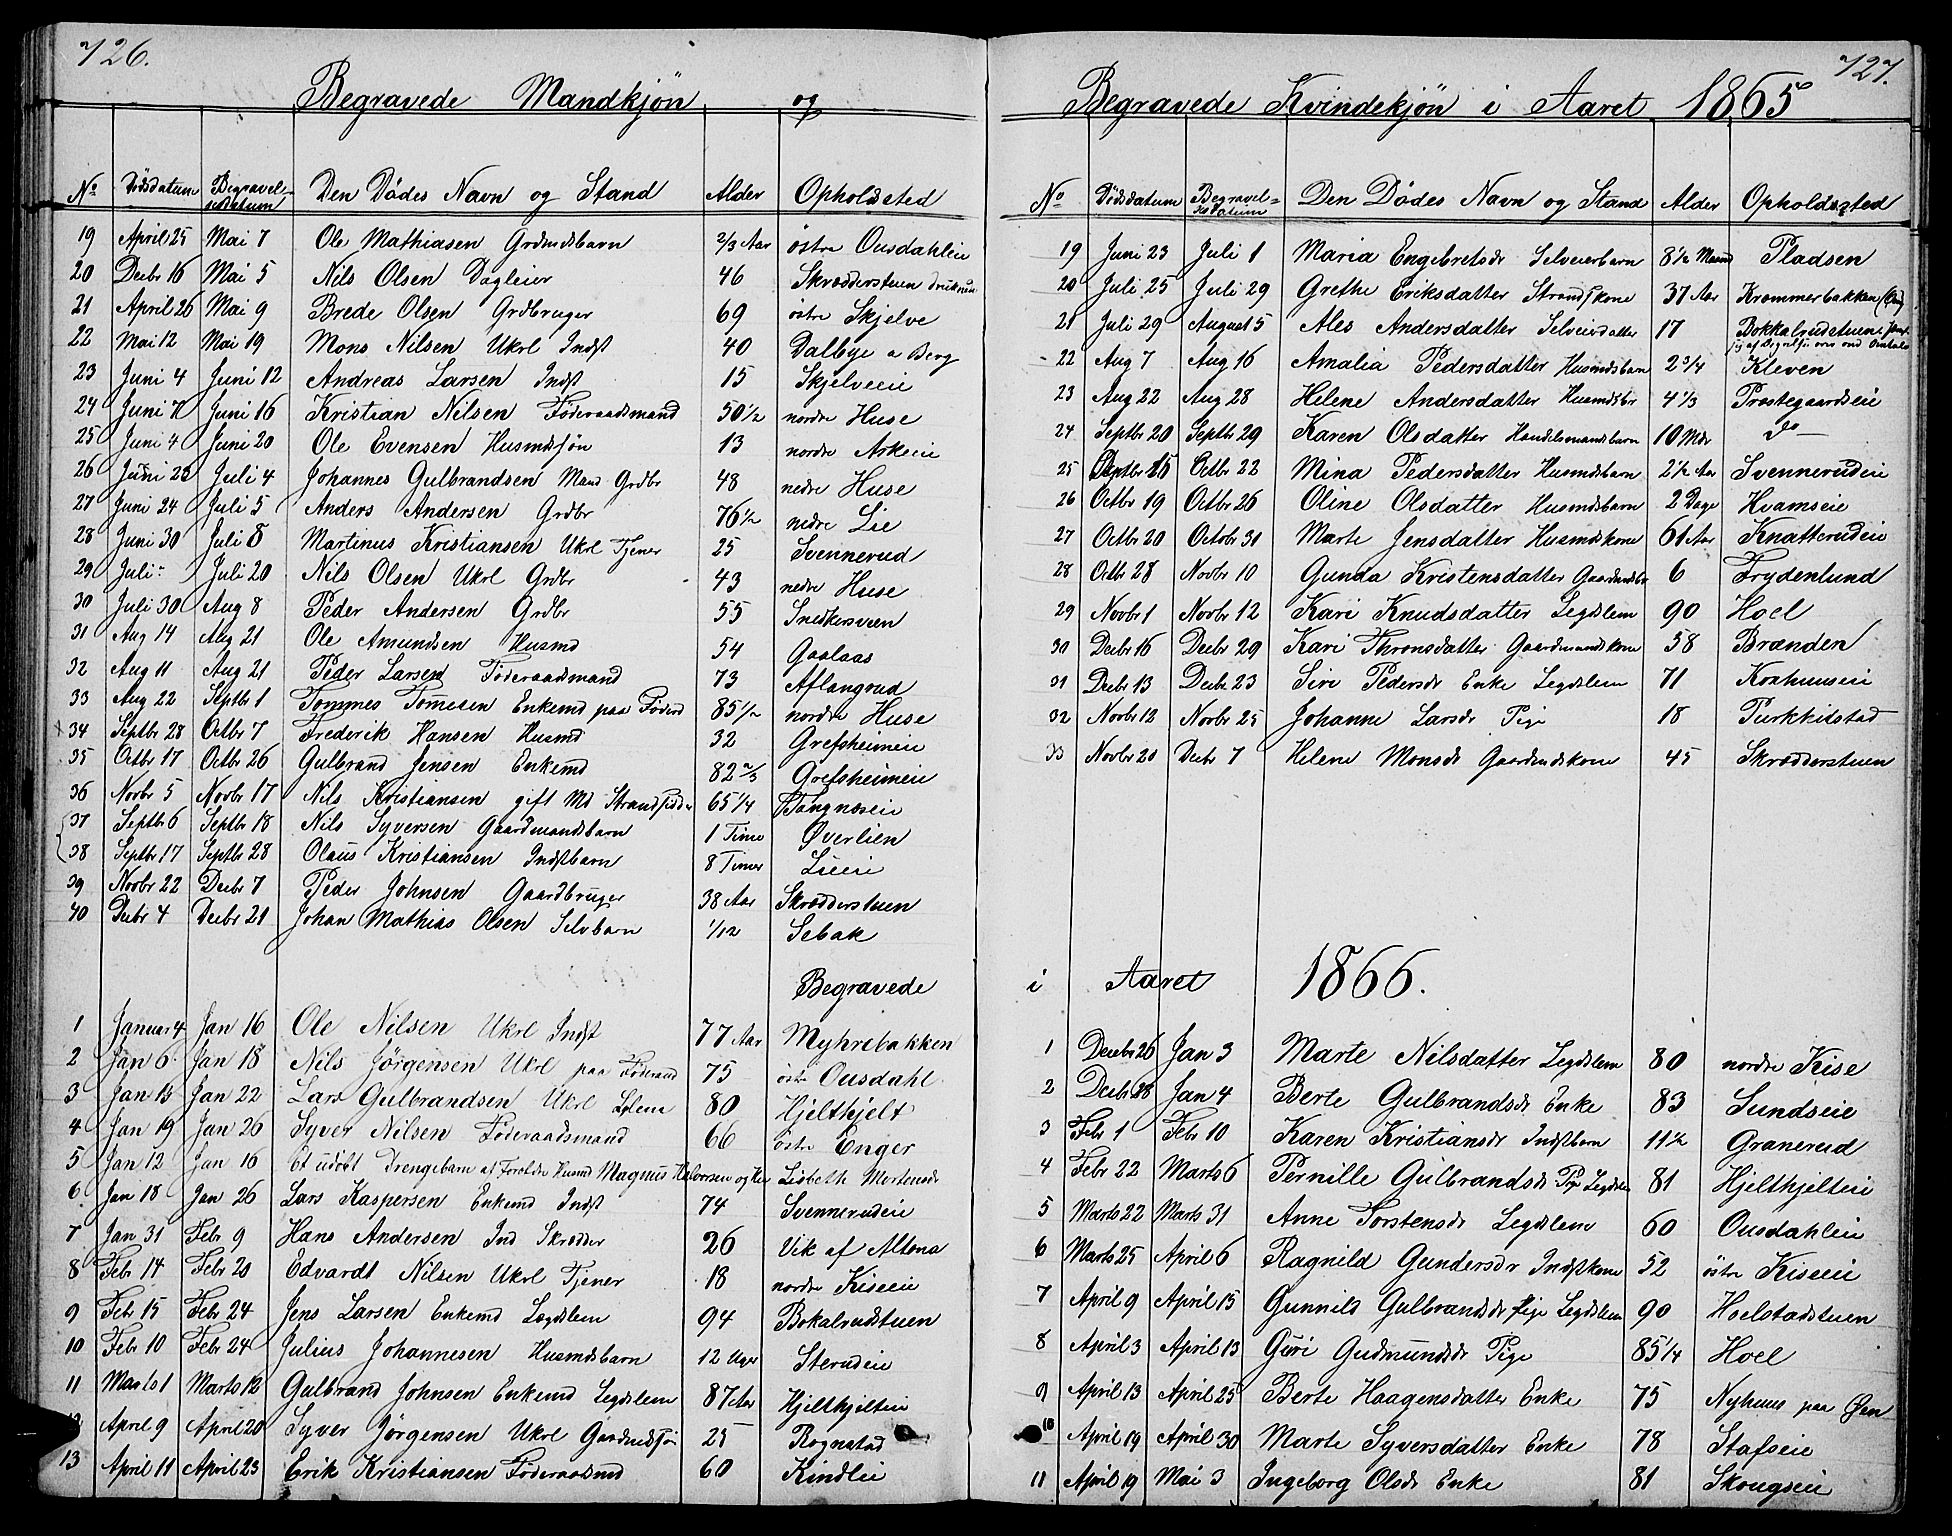 726.
Begravede Mandkjön og
No Dödsdatum Begravelsesdatum Den Dödes Navn og Stand Alder Opholdsted
19 April 25 Mai 7 Ole Mathiasen Grdmdsbarn 2/3 Aar östre Ousdahleie
20 Decbr 16 Mai 5 Nils Olsen Dagleier 46 Skrædderstuen
21 April 26 Mai 9 Brede Olsen Grdbruger 69 östre Skjelve
22 Mai 12 Mai 19 Mons Nilsen Ukrl Indst 40 Dalbye a Berg
23 Juni 4 Juni 12 Andreas Larsen Indst 15 Skjelveeie
24 Juni 7 Juni 16 Kristian Nilsen Föderaadsmand 50 1/2 nordre Huse
25 Juni 4 Juni 20 Ole Evensen Husmdssön 13 nordre Arkeie
26 Juni 23 Juli 4 Johannes Gulbrandsen Mand Grdbr 48 nedre Huse
27 Juni 24 Juli 5 Anders Andersen Grdbr 76 1/2 nedre Lie
28 Juni 30 Juli 8 Martinus Kristiansen Ukrl Tjener 25 Svennerud
29 Juli - Juli 20 Nils Olsen Ukrl Grdbr 43 nedre Huse
30 Juli 30 Aug 8 Peder Andersen Grdbr 55 Snekkersveen
31 Aug 14 Aug 21 Ole Amundsen Husmd 54 Gaalaas
32 Aug 11 Aug 21 Peder Larsen Föderaadsmand 73 Aflangrud
33 Aug 22 Septbr 1 Tommes Tomesen Enkemd paa Föderd 85 1/2 nordre Huse
34 Septbr 28 Octbr 7 Frederik Hansen Husmd 32 Grefsheimeie
35 Octbr 17 Octbr 26 Gulbrand Jensen Enkemd 82 2/3 Grefsheimeie
36 Novbr 5 Novbr 17 Nils Kristiansen gift Md Strandsidder 65 1/4 Tangnæseie
37 Septbr 6 Septbr 18 Nils Syversen Gaardmandsbarn 1 Time Øverlien
38 Septbr 17 Septbr 28 Olaus Kristiansen Indstbarn 8 Timer Lieeie
39 Novbr 22 Decbr 7 Peder Johnsen Gaardbruger 38 Aar Skrædderstuen
40 Decbr 4 Decbr 21 Johan Mathias Olsen Selvbarn 1/12 Sebak
Begravede
1 Januar 4 Jan 16 Ole Nilsen Ukrl Indst 77 Aar Myhrebakken
2 Jan 6 Jan 18 Nils Jörgensen Ukrl paa Föderaad 75 östre Ousdahl
3 Jan 13 Jan 22 Lars Gulbrandsen Ukrl Lglem 80 Hjelthjelt
4 Jan 19 Jan 26 Syver Nilsen Föderaadsmand 66 östre Enger
5 Jan 12 Jan 16 Et udöbt Drengebarn af Foreldre Husmd Magnus Halvorsen og Lisbeth Mortensdr
6 Jan 18 Jan 26 Lars Kaspersen Enkemd Indst 74 Svennerudeie
7 Jan 31 Febr 9 Hans Andersen Ind Skrædder 26 Vik af Altona
8 Febr 14 Febr 20 Edvardt Nilsen Ukrl Tjener 18 nordre Kiseeie
9 Febr 15 Febr 24 Jens Larsen Enkemd Lægdslem 94 Bokalrudstuen
10 Febr 10 Febr 24 Julius Johannesen Husmdsbarn 12 Uger Sterudeie
11 Marts 1 Marts 12 Gulbrand Johnsen Enkemd Legdslem 87 Aar Hjelthjelteie
April 9 April 20 Syver Jörgensen Ukrl Gaardmdssön 25 Rognstad
13 April 11 April 23 Erik Kristiansen Föderaadsmd 60 Kindleie
727.
Begravede Kvindekjön i Aaret 1865
No Dödsdatum Begravelsesdatum Den Dödes Navn og Stand Alder Opholdssted
19 Juni 23 Juli 1 Maria Engebretsdr Selveierbarn 8 1/2 Maand Pladsen
20 Juli 25 Juli 29 Grethe Eriksdatter Strandskone 37 Aar Krammerbakken
21 Juli 29 August 5 Ales Andersdatter Selveierdatter 17 Bokkalrudstuen
22 Aug 7 Aug 16 Amalia Pedersdatter Husmdsbarn 2 3/4 Kleven
23 Aug 22 Aug 28 Helene Andersdatter Husmdsbr 4 1/3 Prestegaardseie
24 Septbr 20 Septbr 29 Karen Olsdatter Handelsmandsbarn 10 Mdr Do
25 Octbr 15 Octbr 22 Mina Pedersdatter Husmdsbarn 2 1/2 Aar Svennerudeie
26 Octbr 19 Octbr 26 Oline Olsdatter Husmdsbarn 2 Dage Hvamseie
27 Octbr 20 Octobr 31 Marte Jensdatter Husmdskone 61 Aar Knatterudeie
28 Octbr 28 Novbr 10 Gunda Kristensdatter Gaardmdsbr 6 Frydenlund
29 Novbr 1 Novbr 12 Kari Knudsdatter Legdslem 90 Hoel
30 Decbr 16 Decbr 29 Kari Thronsdatter Gaardmandskone 58 Brænden
31 Decbr 13 Decbr 23 Siri Pedersdr Enke Legdslem 71
32 Novbr 12 Novbr 25 Johanne Larsdr Pige 18 Purkkilstad
33 Novbr 20 Decbr 7 Helene Monsdr Gaardmdskone 45 Skrædderstuen
i Aaret 1866.
1 Decbr 26 Jan 3 Marte Nilsdatter Legdslem 80 nordre Kise
2 Decbr 28 Jan 4 Berte Gulbrandsdr Enke 83 Sundseie
3 Febr 1 Febr 10 Karen Kristiansdr Indstbarn 11 1/2 Granerud
4 Febr 22 Marts 6 Pernille Gulbrandsdr Pige Legdslem 81 Hjelthjelteie
5 Marts 22 Marts 31 Anne Torstensdr Legdslem 60 Ousdahleie
6 Marts 25 April 6 Ragnild Gundersdr Indstkone 52 östre Kiseeie
7 April 9 April 15 Gunnild Gulbrandsdr Pige Legdslem 90 Hoelstadstuen
8 April 3 April 13 Guri Gudmundsdr Pige 85 1/4 Hoel
9 April 13 April 25 Berte Haagensdatter Enke 75 Nyhuus paa Øen
10 April 19 April 30 Marte Syversdatter Enke 78 Stafseie
11 April 19 Mai 3 Ingeborg Olsdr Enke 81 Skougseie